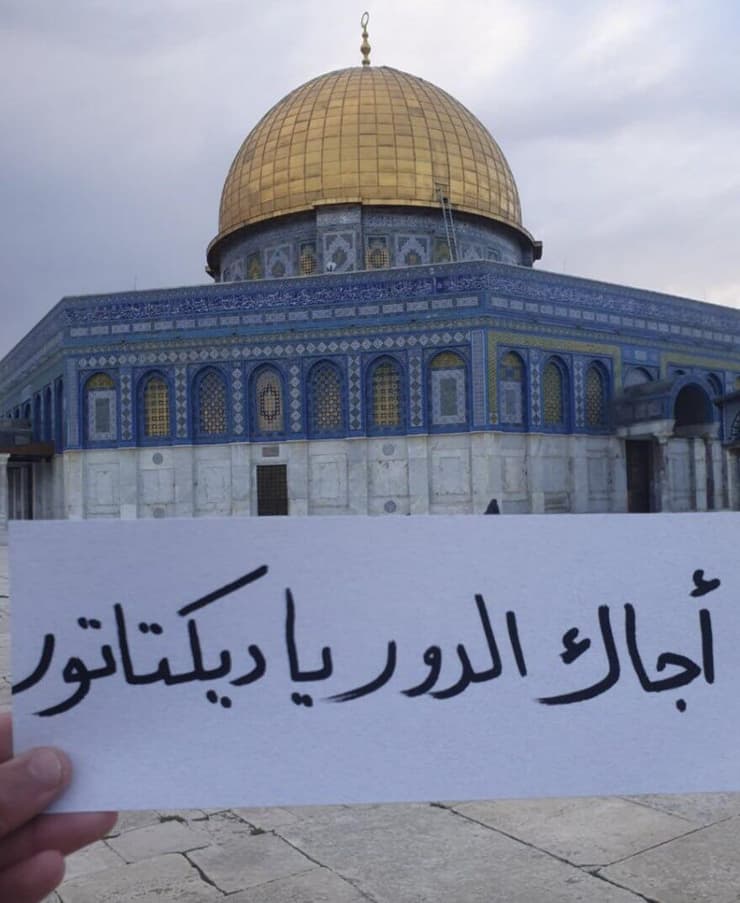 أجاك الدور يا ديكتاتور